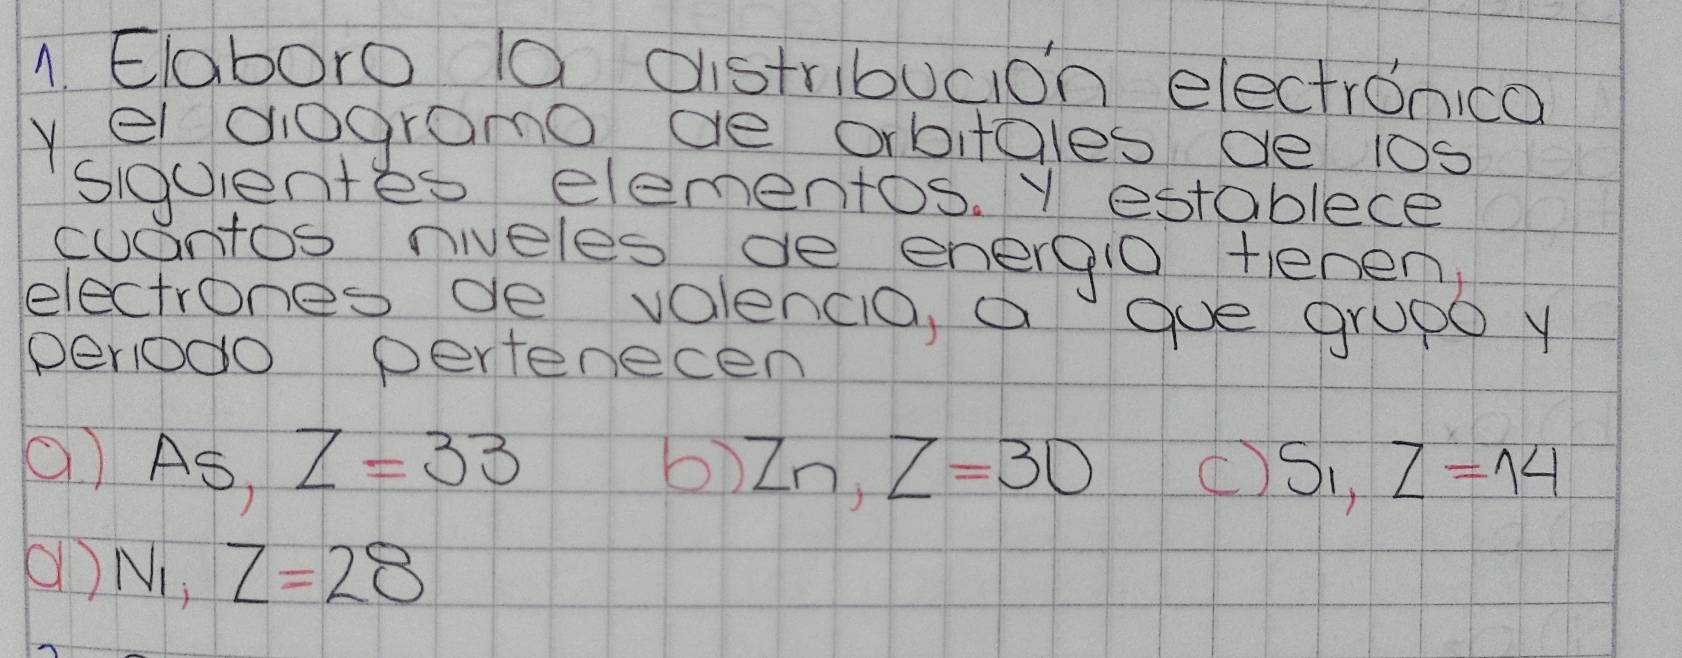 1. Elaboro la distribución electrónica
y el diagrama de orbitales de los
siguientes elementos. Y establece
cuántos niveles de energia tienen,
electrones de valencia, a que grupo y
periodo pertenecen
a) As, Z = 33 b) Zn, Z = 30 c) Si, Z = 14
d) Ni, Z = 28